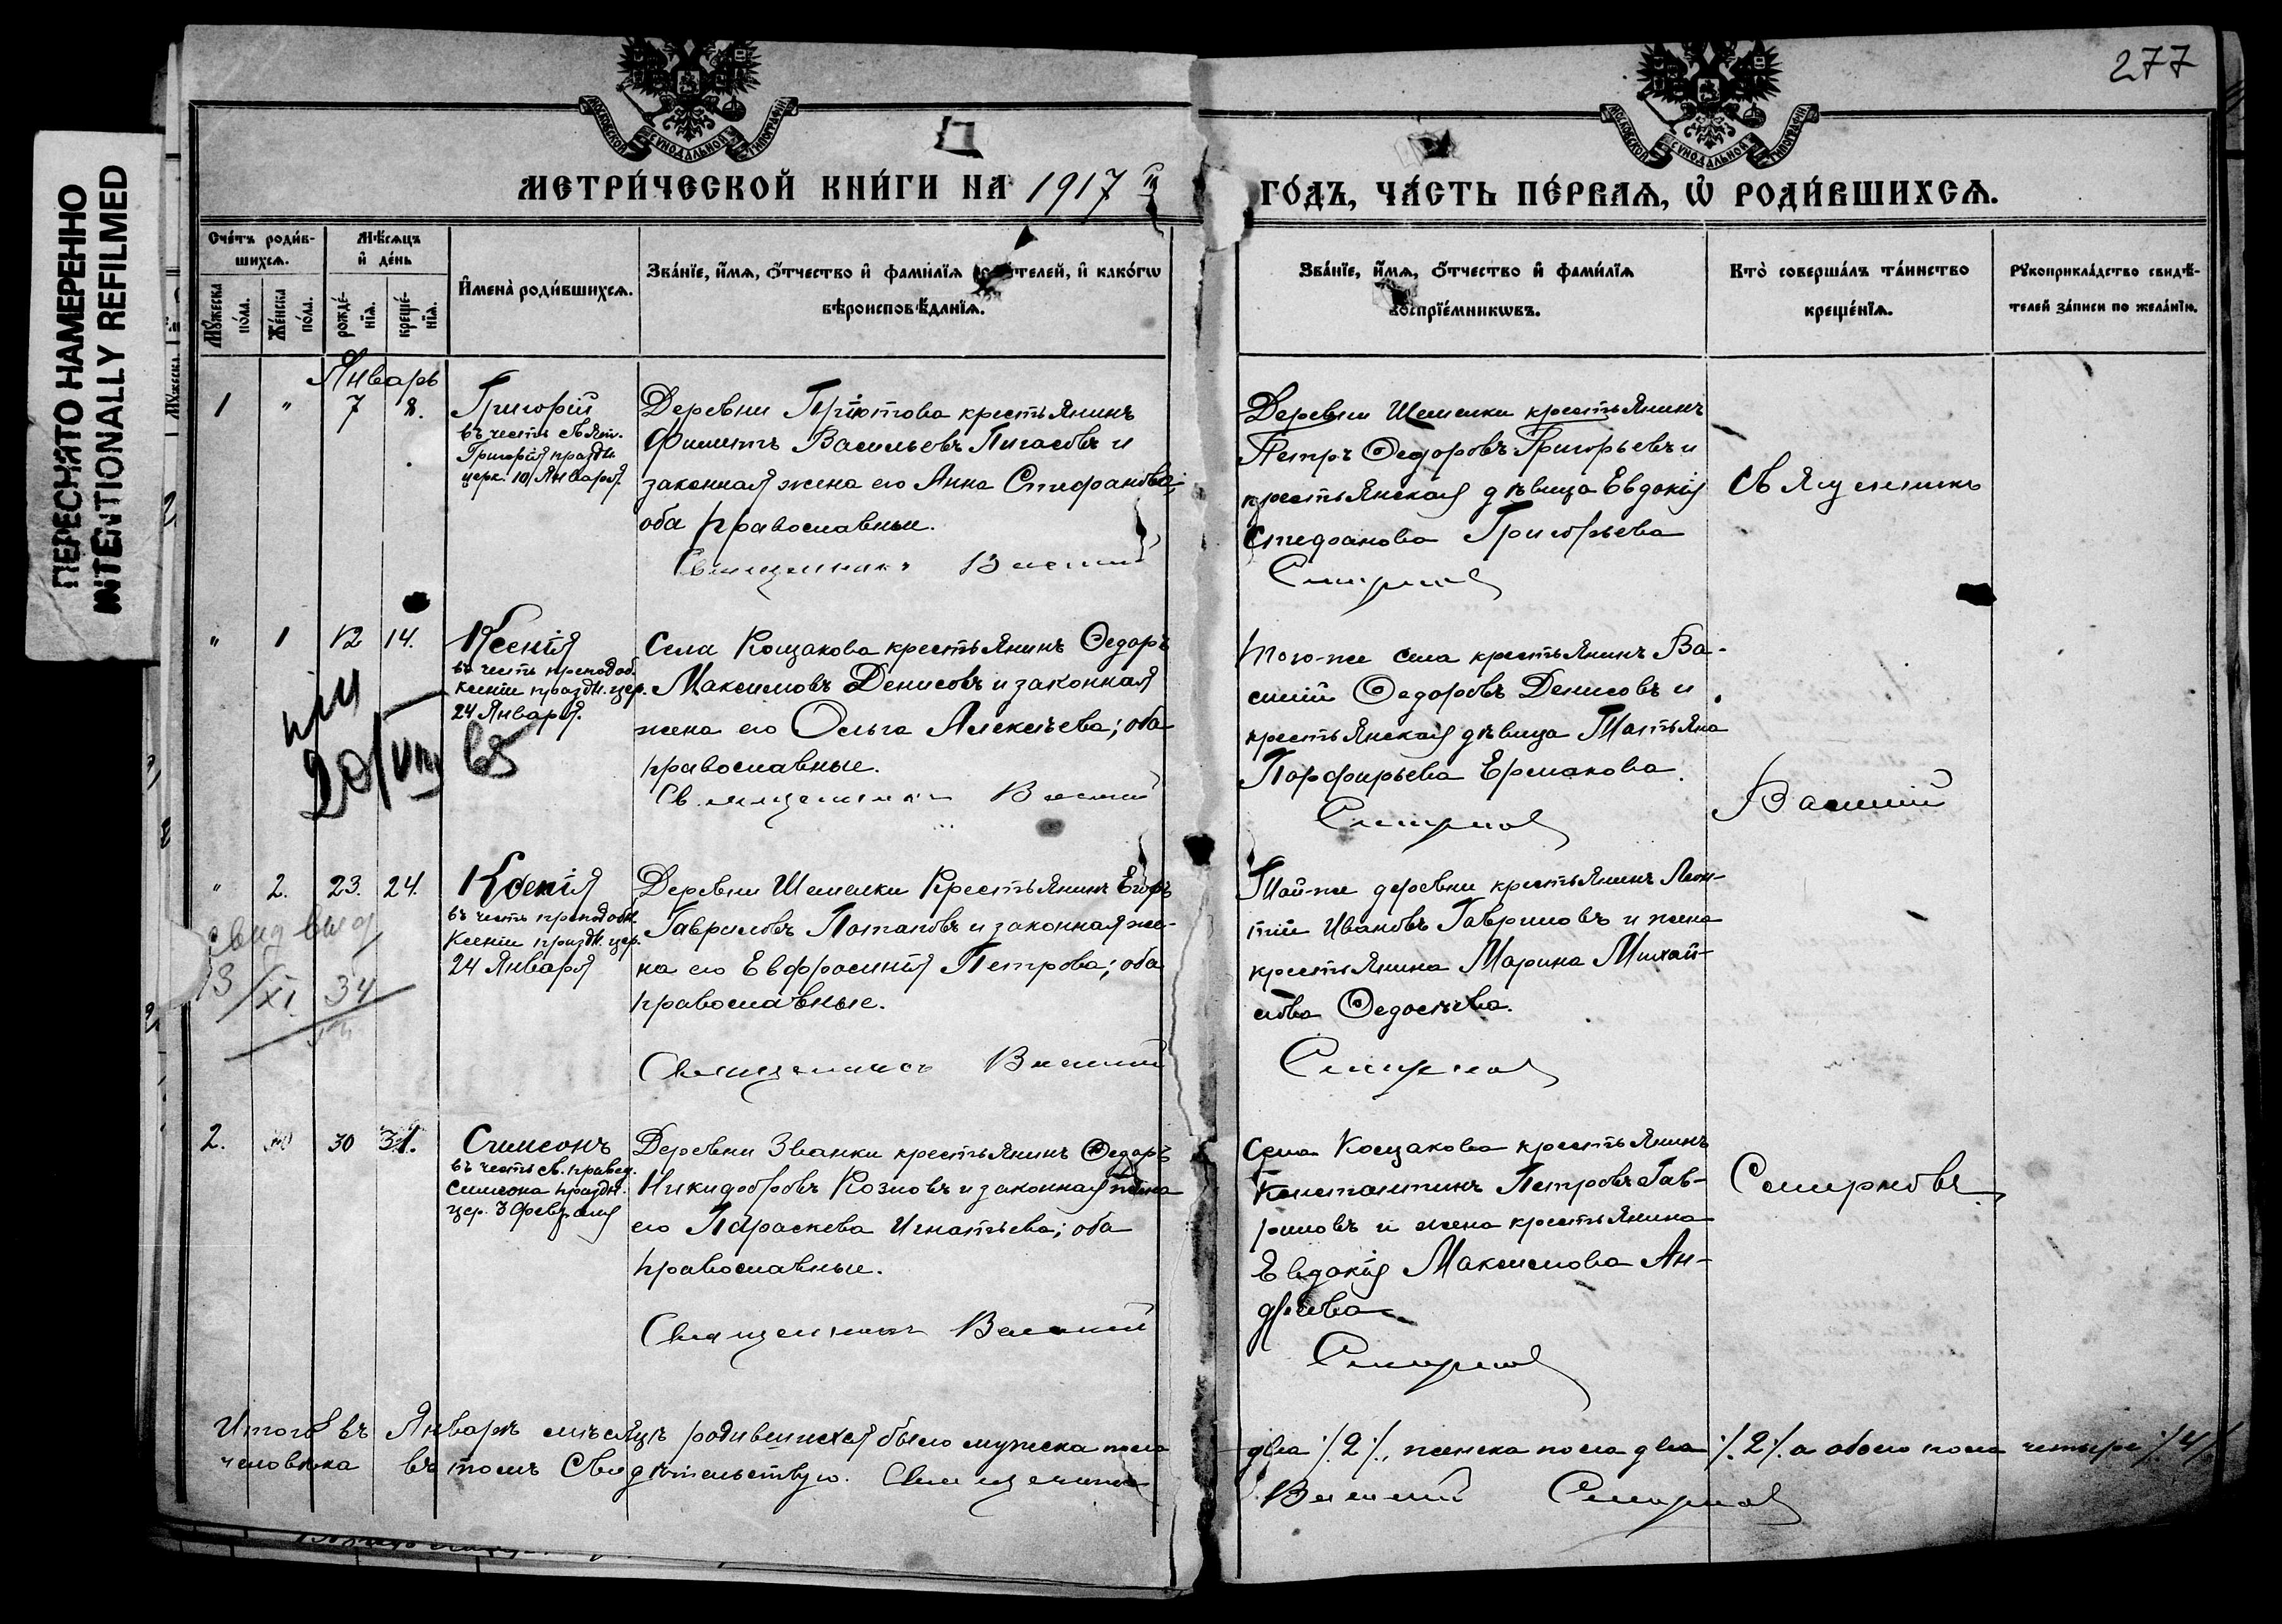 277
ПЕРЕСНЯТО НАМЕРЕННО
INTENTIONALLY REFILMED
МОСКОВСКОЙ СѴНОДАЛЬНОЙ ТИПОГРАФІИ
МОСКОВСКОЙ СѴНОДАЛЬНОЙ ТИПОГРАФІИ
МЕТРИ́ЧЕСКОЙ КНИ́ГИ НА 1917 й
ГО́ДЪ, ЧА́СТЬ ПЕ́РВАѦ, Ѽ РОДИ́ВШИХСѦ.
Сче́тъ роди́в-
шихсѧ.
Мꙋ́жеска
по́ла.
Же́нска
по́ла.
Мѣ́сѧцъ
и҆ де́нь
рожде́-
нїѧ.
креще́-
нїѧ.
И҆мена̀ роди́вшихсѧ.
Зва́нїе, и҆́мѧ, ѻ҆́тчество и҆ фами́лїѧ телей, и҆ како́гѡ
вѣроисповѣ́данїѧ.
Зва́нїе, и҆́мѧ, ѻ҆́тчество и҆ фами́лїѧ
воспрїе́мникѡвъ.
Кто̀ соверша́лъ та́инство
креще́нїѧ.
Рꙋкоприкла́дство свидѣ́-
телей за́писи по жела́нїю.
Январь
1 " 7 8.
Григорій
въ честь святит.
Григорія праздн.
церк. 10 Января.
Деревни Прютова крестьянинъ
Филиппъ Васильевъ Пигасовъ и
законная жена его Анна Стефанова;
оба православные.
Священникъ Василій
Деревни Шемелки крестьянинъ
Петръ Ѳедоровъ Григорьевъ и
крестьянская дѣвица Евдокія
Стефанова Григорьева
Смирновъ
Священникъ
" 1 12 14.
Ксенія
въ честь преподоб.
Ксеніи праздн. цер.
24 Января.
20/VIII 65
Села Кощакова крестьянинъ Ѳедоръ
Максимовъ Денисовъ и законная
жена его Ольга Алексѣева; оба
православные.
Священникъ Василій
того-же села крестьянинъ Ва-
силій Ѳедоровъ Денисовъ и
крестьянская дѣвица Татьяна
Порфирьева Ермакова.
Смирновъ
Василій
" 2. 23. 24.
Ксенія
въ честь преподобн.
Ксеніи праздн. цер.
24 Января
13/XI 34
Деревни Шемелки Крестьянинъ Егоръ
Гавриловъ Потаповъ и законная же-
на его Евфросинія Петрова; оба
православные.
Священникъ Василій
Той-же деревни крестьянинъ Леон-
тій Ивановъ Гавриловъ и жена
крестьянина Марина Михай-
лова Ѳедосѣева.
Смирновъ
2. 30 31.
Симеонъ
въ честь св. правед.
Симеона праздн.
цер. 3 Февраля
Деревни Званки крестьянинъ Ѳедоръ
Никифоровъ Козловъ и законная жена
его Параскева Игнатьева; оба
православные.
Священникъ Василій
Села Кощакова крестьянинъ
Константинъ Петровъ Гав-
риловъ и жена крестьянина
Евдокія Максимова Ан-
дреева
Смирновъ
Смирновъ
Итого въ Январѣ мѣсяцѣ родившихся было мужеска пола
два /2/, женска пола два /2/ а обоего пола четыре /4/
человѣка въ томъ свидѣтельствую. Священникъ
Василій Смирновъ